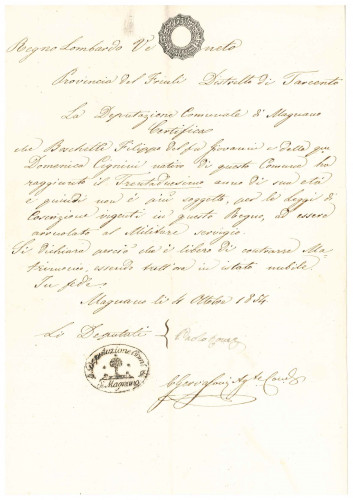 Regno Lombardo Veneto
Provincia del Friuli Distretto di Tarcento
La Deputazione Comunale di Magnano
Certifica
che Boschetti Filippo del fu Giovanni e della qm
Domenica nativo di questo Comune ha
raggiunto il Trentaduesimo anno di sua età
e quindi non è più soggetto, per le leggi di
Coscrizione vigenti in questo Regno, ad essere
arruolato al Militare servigio.
Si dichiara perciò che è libero di contrarre Ma-
trimonio, essendo tutt'ora in istato nubile.
In fede
Magnano li 4 Ottobre 1854
Li Deputati
Deputazione Comle
di Magnano